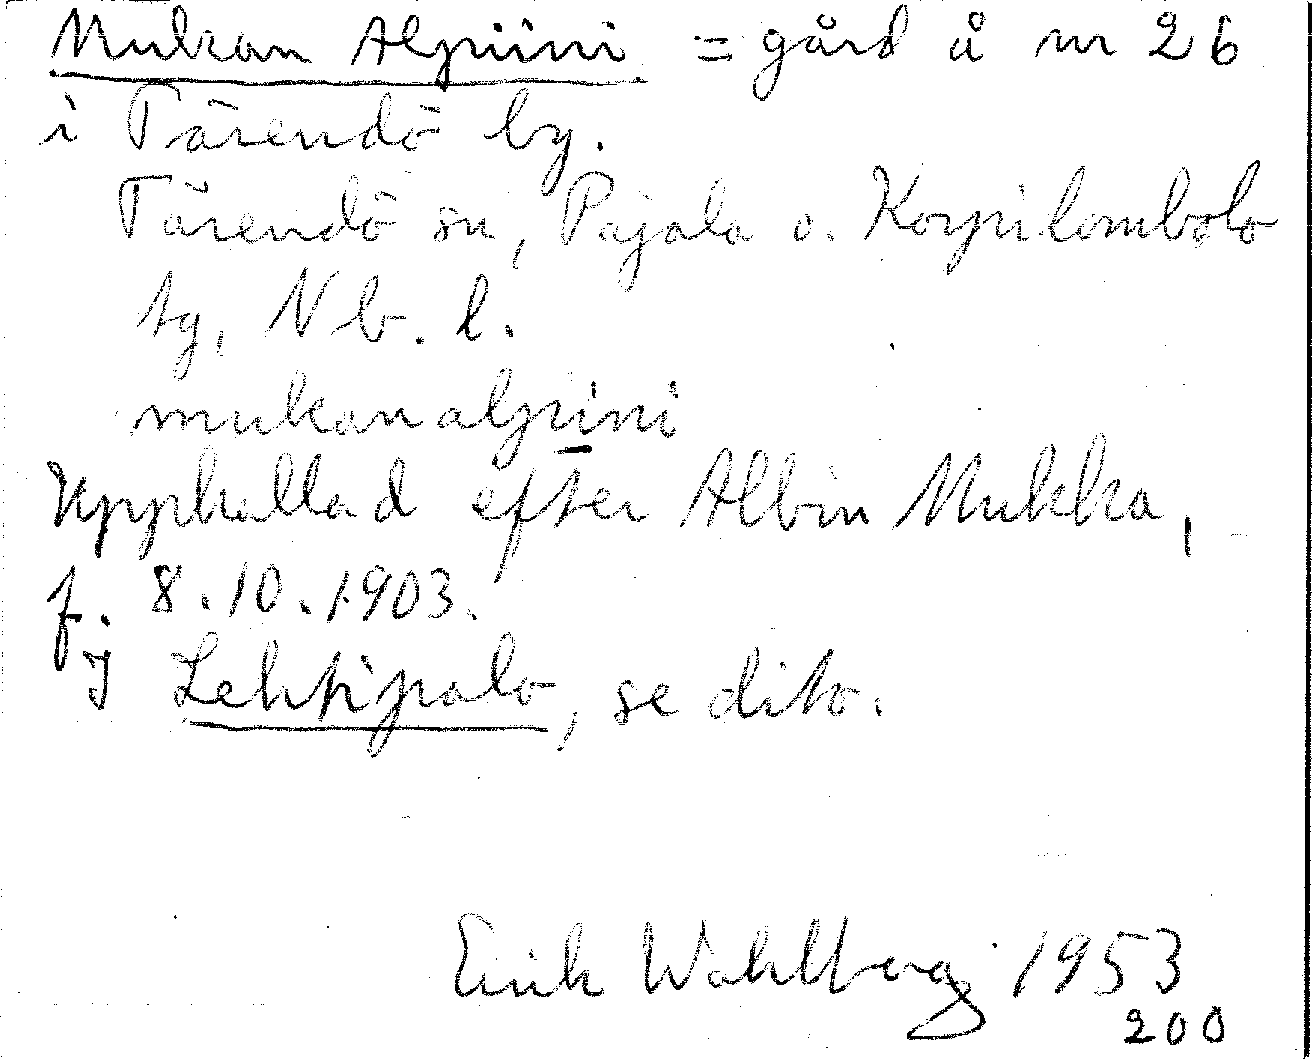 Mukan Alpiini = gård å nr 26
i Tärendö by.
Tärendö sn, Pajala o. Korpilombolo
tg, Nb. l.
mukan alpini
Uppkallad efter Albin Mukka,
f. 8.10.1903.
I Lehtipalo, se dito.
Erik Wahlberg 1953
200